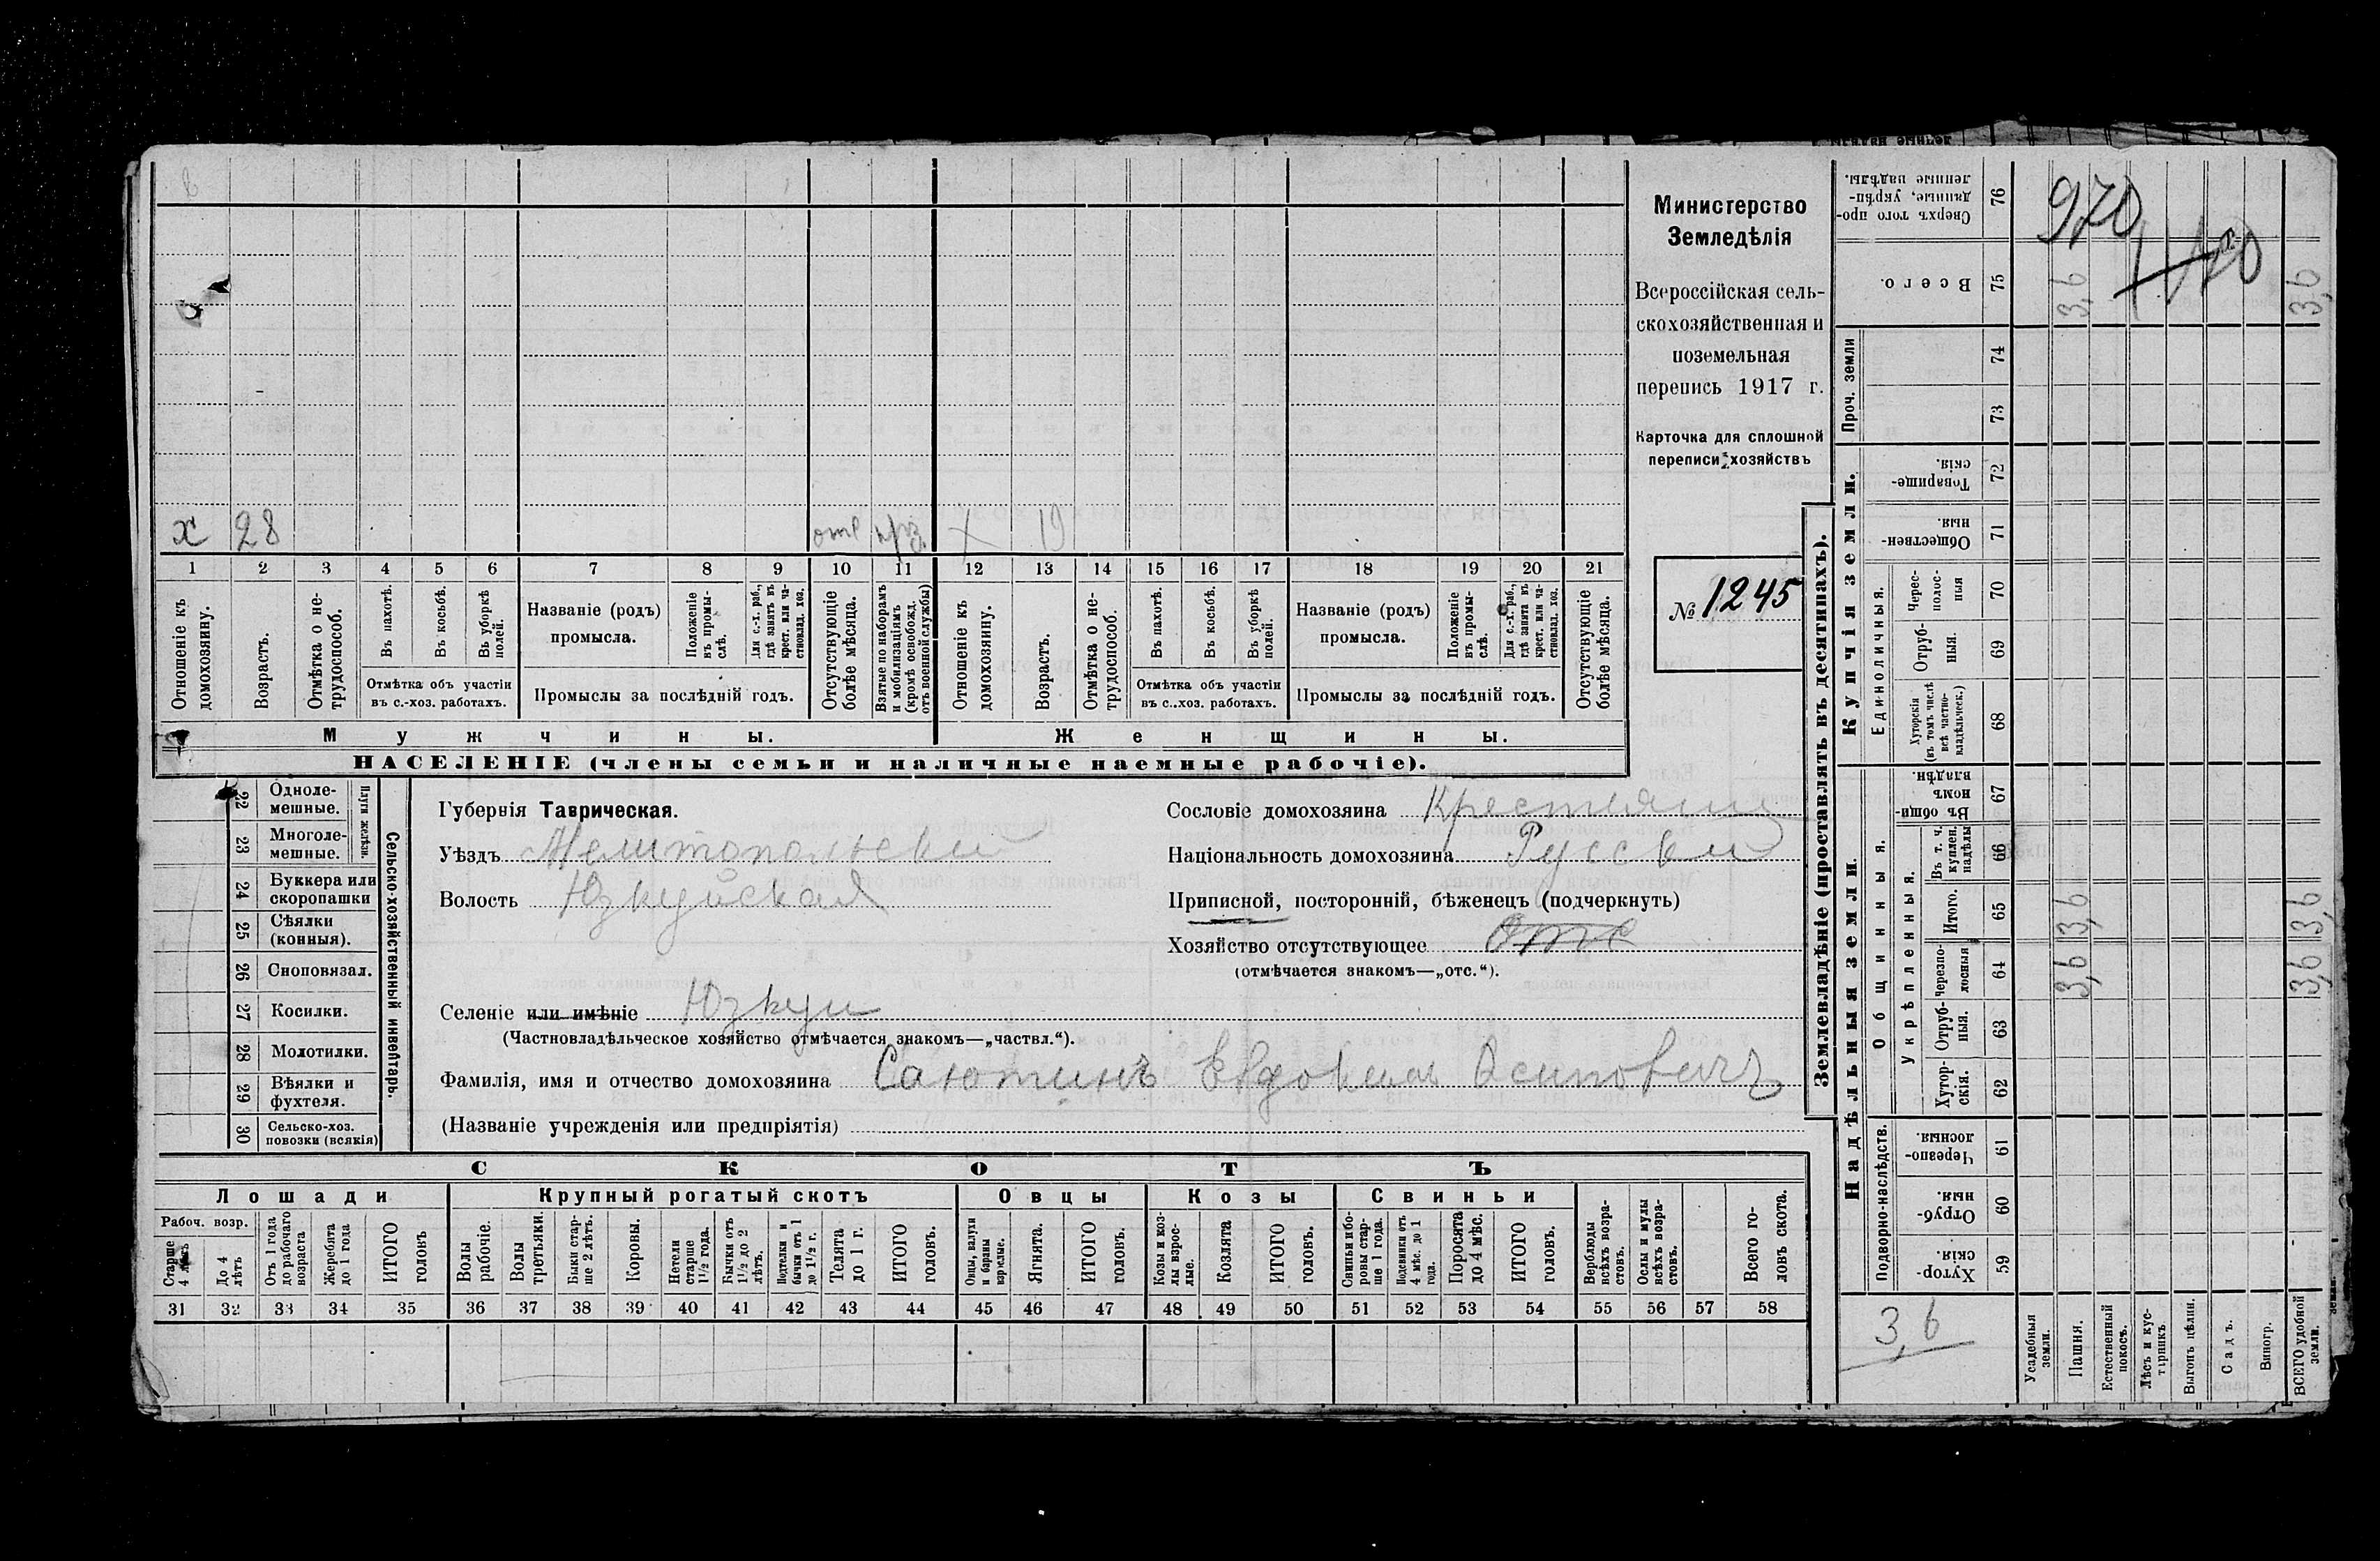 х 28 отс приз. х 19
1 2 3 4 5 6 7 8 9 10 11 12 13 14 15 16 17 18 19 20 21
Отношеніе къ домохозяину.
Возрастъ.
Отмѣтка о не-
трудоспособ.
Въ пахотѣ.
Въ косьбѣ.
Въ уборкѣ
полей.
Отмѣтка объ участіи
въ с.-хоз. работахъ.
Названіе (родъ)
промысла.
Положеніе
въ промы-
слѣ.
Для с.-х. раб.,
гдѣ занятъ въ
крест. или ча-
стновлад. хоз.
Промыслы за послѣдній годъ.
Отсутствующіе
болѣе мѣсяца.
Взятые по наборамъ
и мобилизаціямъ
(кромѣ освобожд.
отъ военной службы)
Отношеніе къ
домохозяину.
Возрастъ.
Отмѣтка о не-
трудоспособ.
Въ пахотѣ.
Въ косьбѣ.
Въ уборкѣ
полей.
Отмѣтка объ участіи
въ с..хоз. работахъ.
Названіе (родъ)
промысла.
Положеніе
въ промы-
слѣ.
Для с.-х. раб.,
гдѣ занята въ
крест. или ча-
стновлад. хоз.
Промыслы за послѣдній годъ.
Отсутствующіе
болѣе мѣсяца.
Мужчины. Женщины.
НАСЕЛЕНІЕ (члены семьи и наличные наемные рабочіе).
Министерство
Земледѣлія
Всероссійская сель-
скохозяйственная и
поземельная
перепись 1917 г.
Карточка для сплошной
переписи хозяйствъ
№ 1245
22 Одноле-
мешные.
23 Многоле-
мешные.
Плуги желѣзн.
24 Буккера или
скоропашки
25 Сѣялки
(конныя).
26 Сноповязал.
27 Косилки.
28 Молотилки.
29 Вѣялки и
фухтеля.
30 Сельско-хоз.
повозки (всякія)
Сельско-хозяйственный инвентарь.
Губернія Таврическая.
Уѣздъ Мелитопольскій
Волость Юзкуйская
Сословіе домохозяина Крестьянинъ
Національность домохозяина Русскій
Приписной, посторонній, бѣженецъ (подчеркнуть)
Хозяйство отсутствующее Отс
(отмѣчается знакомъ—„отс.“).
Селеніе или имѣніе Юзкуи
(Частновладѣльческое хозяйство отмѣчается знакомъ—„частвл.“).
Фамилія, имя и отчество домохозяина Саютинъ Евдокимъ Осиповичъ
(Названіе учрежденія или предпріятія)
СКОТЪ
Лошади Крупный рогатый скотъ Овцы Козы Свиньи
Рабоч. возр.
Старше
4 лѣтъ
До 4
лѣтъ
Отъ 1 года
до рабочаго
возраста
Жеребята
до 1 года
ИТОГО
головъ
Волы
рабочіе.
Волы
третьяки.
Быки стар-
ше 2 лѣтъ.
Коровы.
Нетели
старше
1½ года.
Бычки отъ
1½ до 2
лѣтъ.
Подтелки и
бычки отъ 1
до 1½ г.
Телята
до 1 г.
ИТОГО
головъ.
Овцы, валухи
и бараны
взрослые.
Ягнята.
ИТОГО
головъ.
Козы и коз-
лы взрос-
лые.
Козлята
ИТОГО
головъ.
Свиньи и бо-
ровы стар-
ше 1 года.
Подсвинки отъ
4 мѣс. до 1
года.
Поросята
до 4 мѣс.
ИТОГО
головъ.
Верблюды
всѣхъ возра-
стовъ.
Ослы и мулы
всѣхъ возра-
стовъ.
Всего го-
ловъ скота.
31 32 33 34 35 36 37 38 39 40 41 42 43 44 45 46 47 48 49 50 51 52 53 54 55 56 57 58
Землевладѣніе (проставлять въ десятинахъ).
Надѣльныя земли.
Купчія земли.
Проч. земли
Подворно-наслѣдств.
Общинныя.
Укрѣпленныя.
Единоличныя.
Сверхъ того про-
данные, укрѣп-
ленные надѣлы.
76
Всего.
75
74
73
Товарище-
скія.
72
Обществен-
ныя.
71
Черес-
полос-
ныя
70
Отруб-
ныя.
69
Хуторскія
(въ томъ числѣ
всѣ частно-
владѣльческ.)
68
Въ общи-
номъ
владѣн.
67
Въ т. ч.
куплен.
надѣлы
66
Итого.
65
Черезпо-
лосныя
64
Отруб-
ныя.
63
Хутор-
скія.
62
Черезпо-
лосныя.
61
Отруб-
ныя.
60
Хутор-
скія.
59
970
3,6 3,6
3,6 3,6
3,6 3,6
3,6
Усадебныя
земли.
Пашня.
Естественный
покосъ.
Лѣсъ и кус-
тарникъ.
Выгонъ цѣлин.
Садъ.
Виногр.
ВСЕГО удобной
земли.